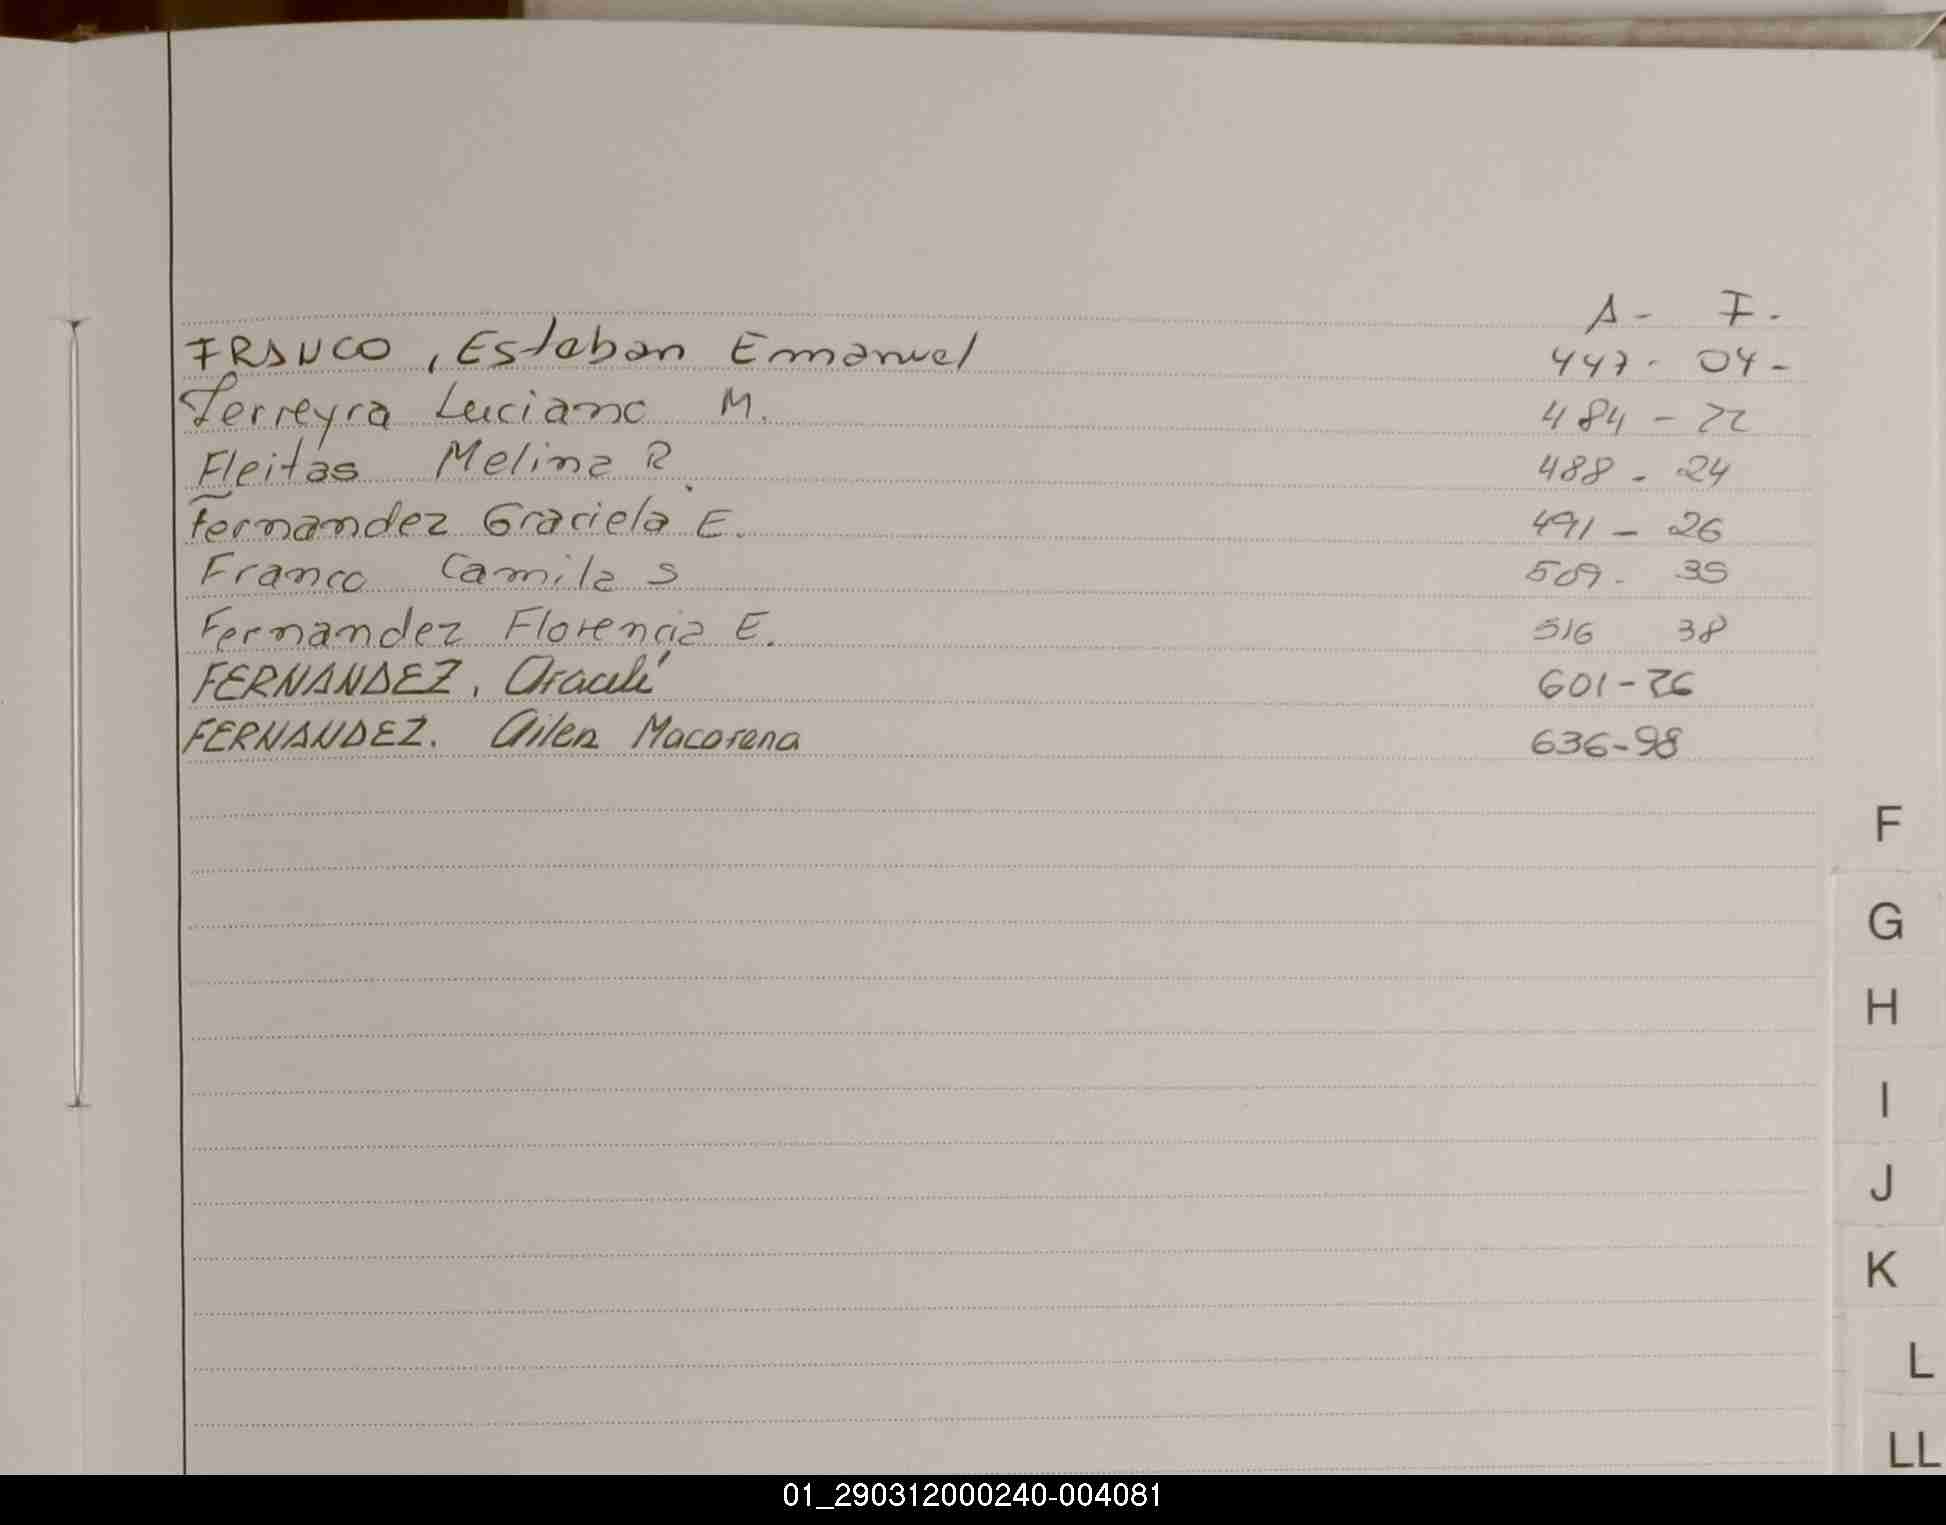 A - F -
FRANCO, Esteban Emanuel 447 - 04 -
Ferreyra Luciano M. 484 - 22
Fleitas Melina R. 488 - 24
Fernandez Graciela E. 491 - 26
Franco Camila S 509 - 35
Fernandez Florencia E. 516 38
FERNANDEZ, Araceli 601 - 76
FERNANDEZ. Ailen Macarena 636 - 98
F
G
H
I
J
K
L
LL
01_290312000240-004081